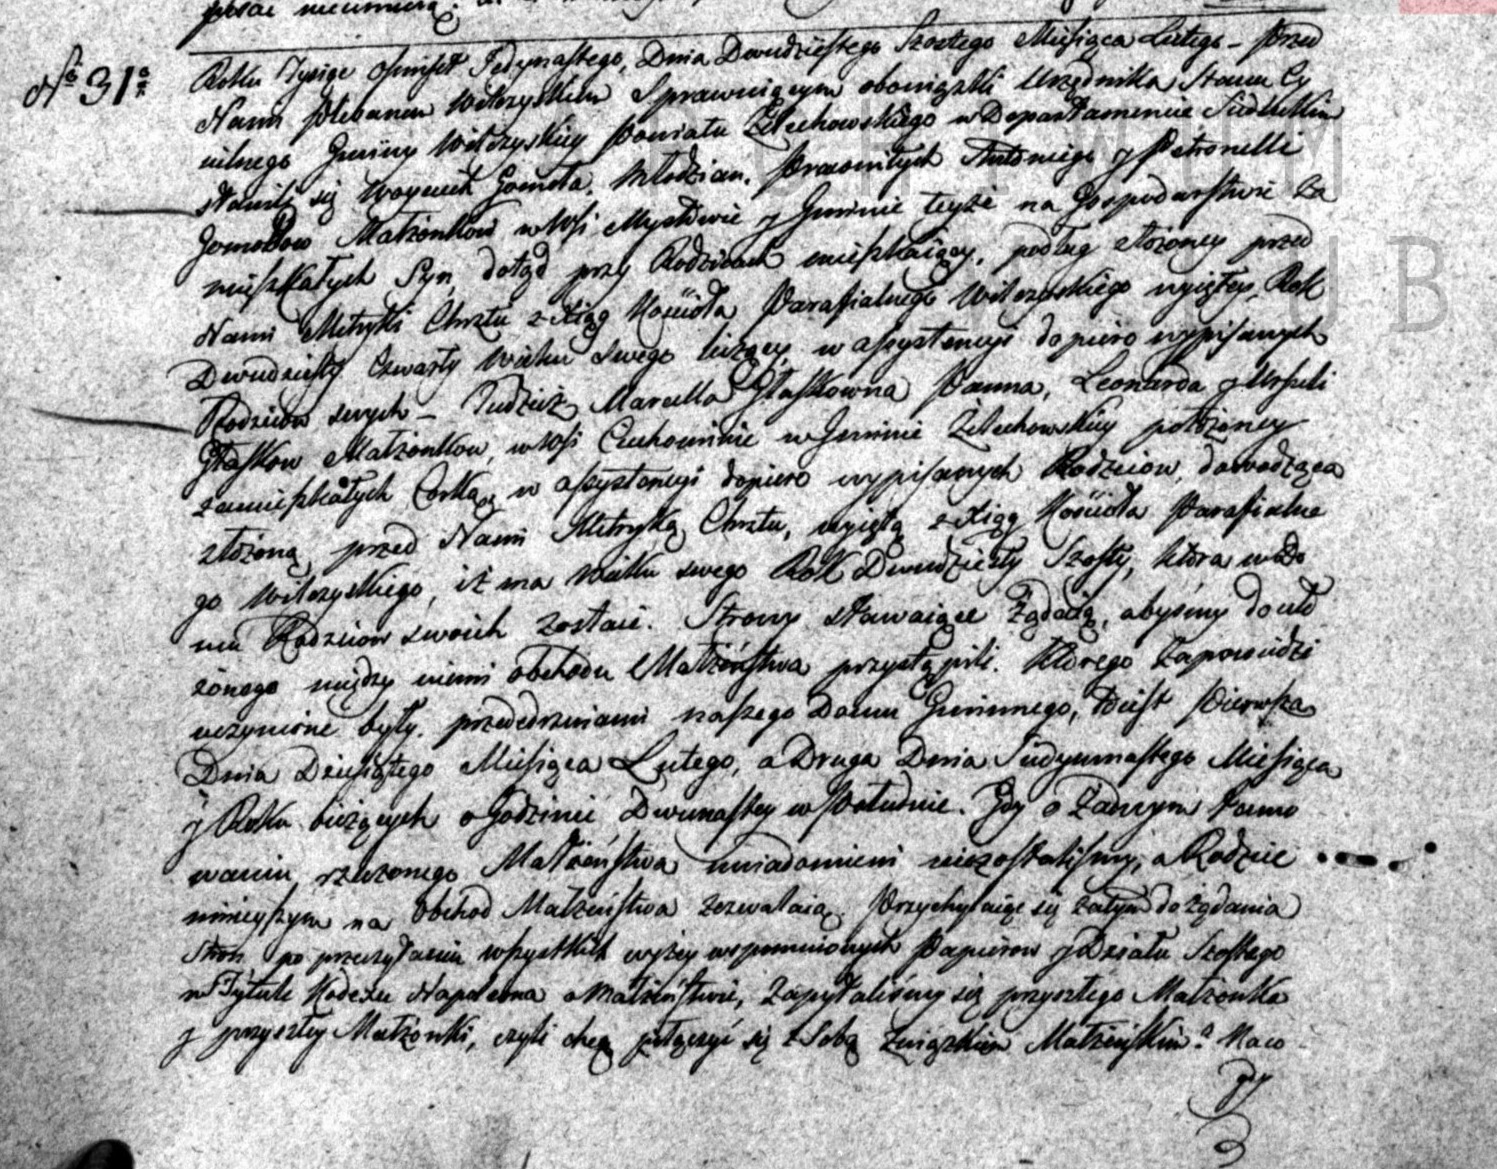 Nº 31º
Roku Tysiąc Ośmset Jedynastego, Dnia Dwudziestego Szostego Miesiąca Lutego – Przed
Nami Plebanem Wilczyskim Sprawuiącym obowiązki Urzędnika Stanu Cy
wilnego Gminy Wilczyskiey Powiatu Żelechowskiego w Departamencie Siedleckim
stawili się Woyciech Gomoła, Młodzian, Pracowitych Antoniego y Petronelli
Gomołow Małżonkow w Wsi Mysłowie y Gminie teyże na Gospodarstwie Za
mieszkałych Syn, dotąd przy Rodzicach mieszkaiący, podług złożoney przed
Nami Metryki Chrztu z Xiąg Kościoła Parafialnego Wilczyskiego wyiętey, Rok
Dwudziesty Czwarty Wieku swego liczący, w assystencyi dopiero wypisanych
Rodzicow swych – Tudzież Marcella Głaskowna Panna, Leonarda y Urszuli
Głaskow Małżonkow, w Wsi w Gminie Żelechowskiey położoney
zamieszkałych Corka, w assystencyi dopiero wypisanych Rodzicow, dowodząca
złożoną przed Nami Metryką Chrztu, wyiętą z Xiąg Kościoła Parafialne
go Wilczyskiego, iż ma Wieku swego Rok Dwudziesty Szosty, ktora w do
mu Rodzicow swoich zostaie. Strony stawaiące żądaią, abyśmy do uło
żonego między niemi obchodu Małżeństwa przystąpili. Ktorego Zapowiedzi
uczynione były przededrzwiami naszego Domu Gminnego, to iest Pierwsza
Dnia Dziesiątego Miesiąca Lutego, a Druga Dnia Siedymnastego Miesiąca
y Roku bieżących o Godzinie Dwunastey w Południe. Gdy o żadnym tamo
waniu rzeczonego Małżeństwa uwiadomieni niezostaliśmy, a Rodzice
ninieyszym na Obchod Małżeństwa zezwalaią. Przychylaiąc się zatym do żądania
Stron po przeczytaniu wszystkich wyżey wspomnionych Papierow y Działu Szostego
w Tytule Kodexu Napoleona o Małżeństwie, Zapytaliśmy się przyszłego Małżonka
y przyszłey Małżonki, czyli chcą połączyć się z Sobą Związkiem Małżeńskim? Na co